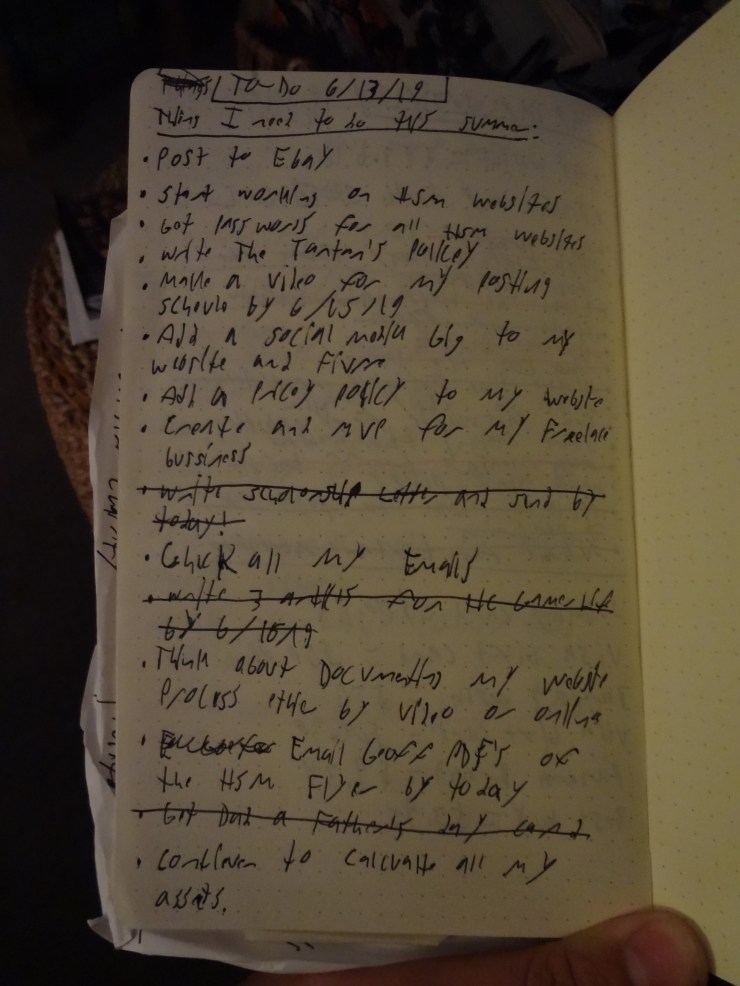 TO-DO 6/13/19
Things I need to do this summer:
• Post to Ebay
• Start working on HSM websites
• Get passwords for all HSM websites
• Write The Tantan's Policy
• Make a video for my posting
schedule by 6/15/19
• Add a social media Gig to my
website and Fiverr
• Add a policy to my website
• Create and MVP for my Freelance
bussiness
• Write scholorship Letter and send by
today!
• Check all my Emails
• Write 3 for HC
by 6/1619
• Think about Documenting my website
Process ether by video or online
• Email Geoff PDF's of
the HSM Flyer by today
• Get Dad a Father's day card.
• to calculate all my
assets.